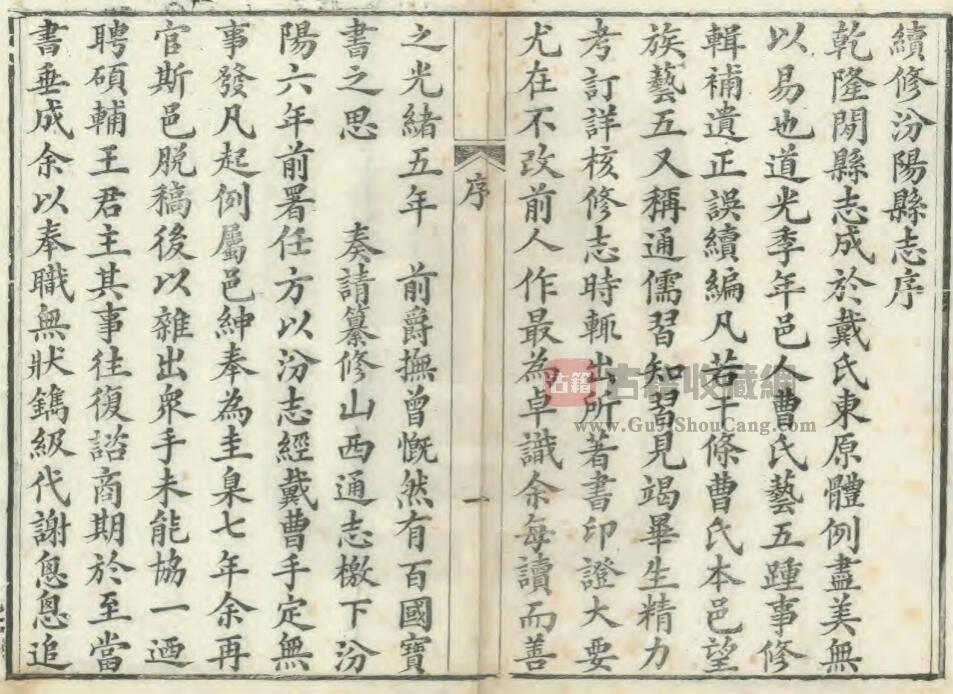 續修汾陽縣志序
乾隆閒縣志成於戴氏東原體例盡美無
以易也道光季年邑人曹氏藝五踵事修
輯補遺正誤續編凡若干條曹氏本邑望
族藝五又稱通儒習知習見竭畢生精力
考訂詳核修志時輒出所著書印證大要
尤在不改前人作最為卓識余每讀而善
序
一
之光緒五年 前爵撫曾慨然有百國寶
書之思 奏請纂修山西通志檄下汾
陽六年前署任方以汾志經戴曹手定無
事發凡起例屬邑紳奉為圭臬七年余再
官斯邑脱稿後以雜出衆手未能協一迺
聘碩輔王君主其事往復諮商期於至當
書垂成余以奉職無狀鐫級代謝悤悤追
古籍
古籍收藏網
www.GuJiShouCang.com